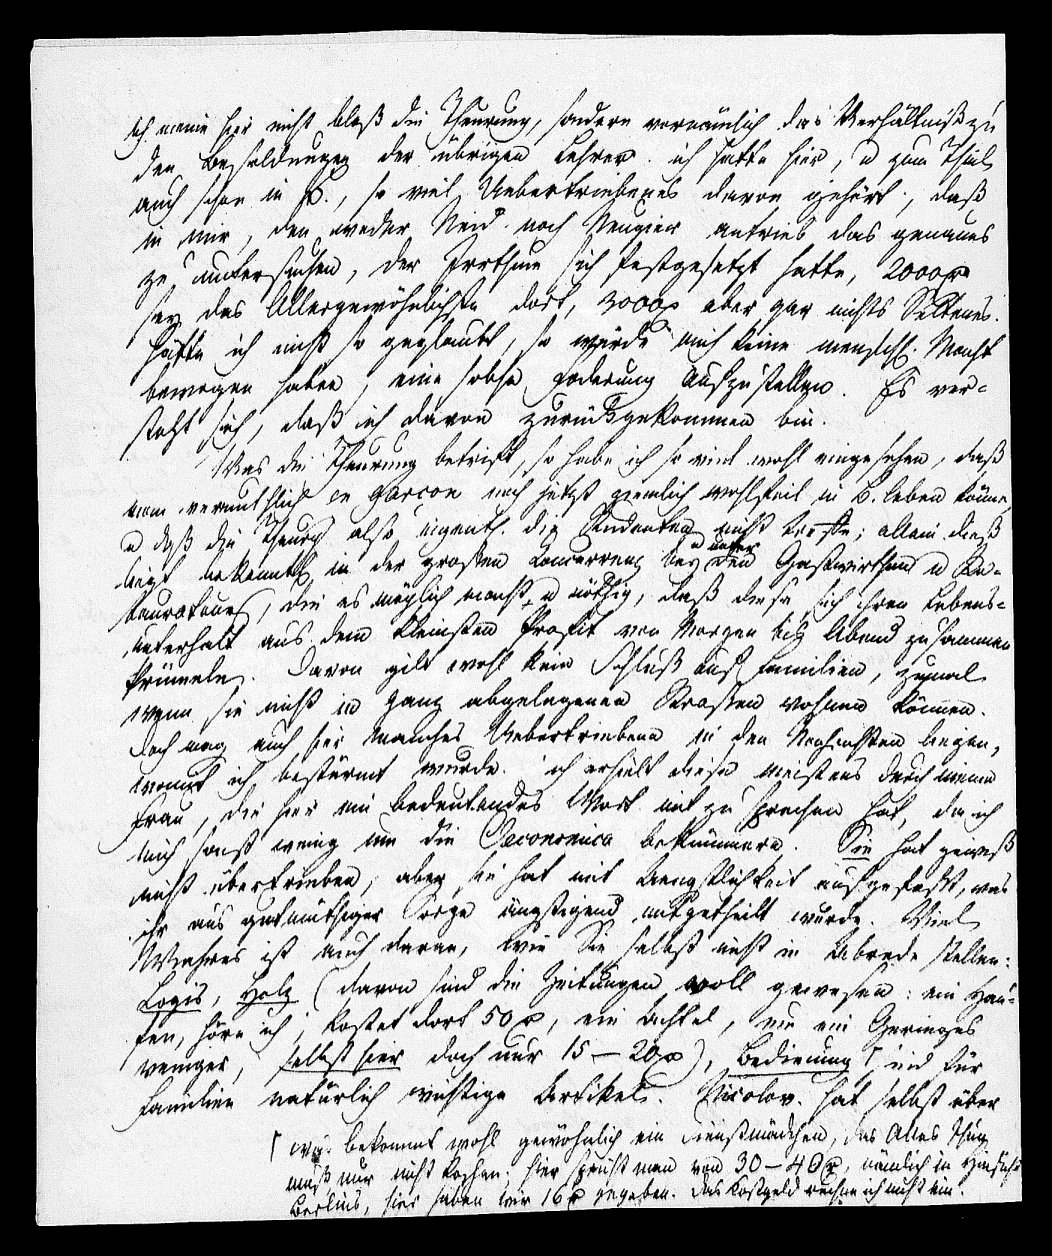 Ich meine hier nicht bloß die Theurung, sondern vornämlich das Verhältniß zu
den Besoldungen der übrigen Lehrer. ich hatte hier, u zum Theil
auch schon in H., so viel Uebertriebenes davon gehört, daß
in mir, den weder Neid noch Neugier antrieb das genaues
zu untersuchen, der Irrthum sich festgesetzt hatte, 2000 r
sey das Allergewöhnlichste dort, 3000 r aber gar nichts Seltenes.
Hätte ich nicht so geglaubt, so würde mich keine menschl. Macht
bewogen haben, eine solche Foderung aufzustellen. Es ver-
steht sich, daß ich davon zurückgekommen bin.
Was die Theurung betrift, so habe ich so viel wohl eingesehen, daß
man vermuthlich en Garcon noch jetzt ziemlich wohlfeil in B. leben könne,
u daß die Theurg also eigentl. die Studenten nicht treffe; allein dieß
liegt bekanntl. in der großen Concurrenz bey u unter den Gastwirthen u Re-
taurateurs, die es möglich macht u nöthig, daß diese sich ihren Lebens-
unterhalt aus dem kleinsten Profit von Morgen bis Abend zusammen
krümeln. Davon gilt wohl kein Schluß auf Familien, zumal
wenn sie nicht in ganz abgelegenen Straßen wohnen können.
Doch mag auch hier manches Uebertriebene in den Nachrichten liegen,
womit ich bestürmt wurde. ich erhielt diese meistens durch meine
Frau, die hier ein bedeutendes Wort mit zu sprechen hat, da ich
mich sonst wenig um die Oeconomica bekümmere. Sie hat gewiß
nicht übertrieben; aber sie hat mit Aengstlichkeit aufgefaßt, was
ihr aus gutmüthiger Sorge ängstigend mitgetheilt wurde. Viel
Wahres ist auch daran, wie Sie selbst nicht in Abrede stellen:
Logis, Holz (davon sind die Zeitungen voll gewesen: ein Hau-
fen, höre ich, kostet dort 50 r, ein Achtel, um ein Geringes
weniger, selbst hier doch nur 15 – 20 r), Bedienung sind für
Familien natürlich wichtige Artikel. Nicolov. hat selbst über
bekommt wohl gewöhnlich ein Dienstmädchen, das Alles thun
muß nur nicht kochen; hier spricht man von 30 – 40 r, nämlich in Hinsicht
Berlins, hier haben wir 16 r gegeben. Das Kostgeld rechne ich nicht ein.